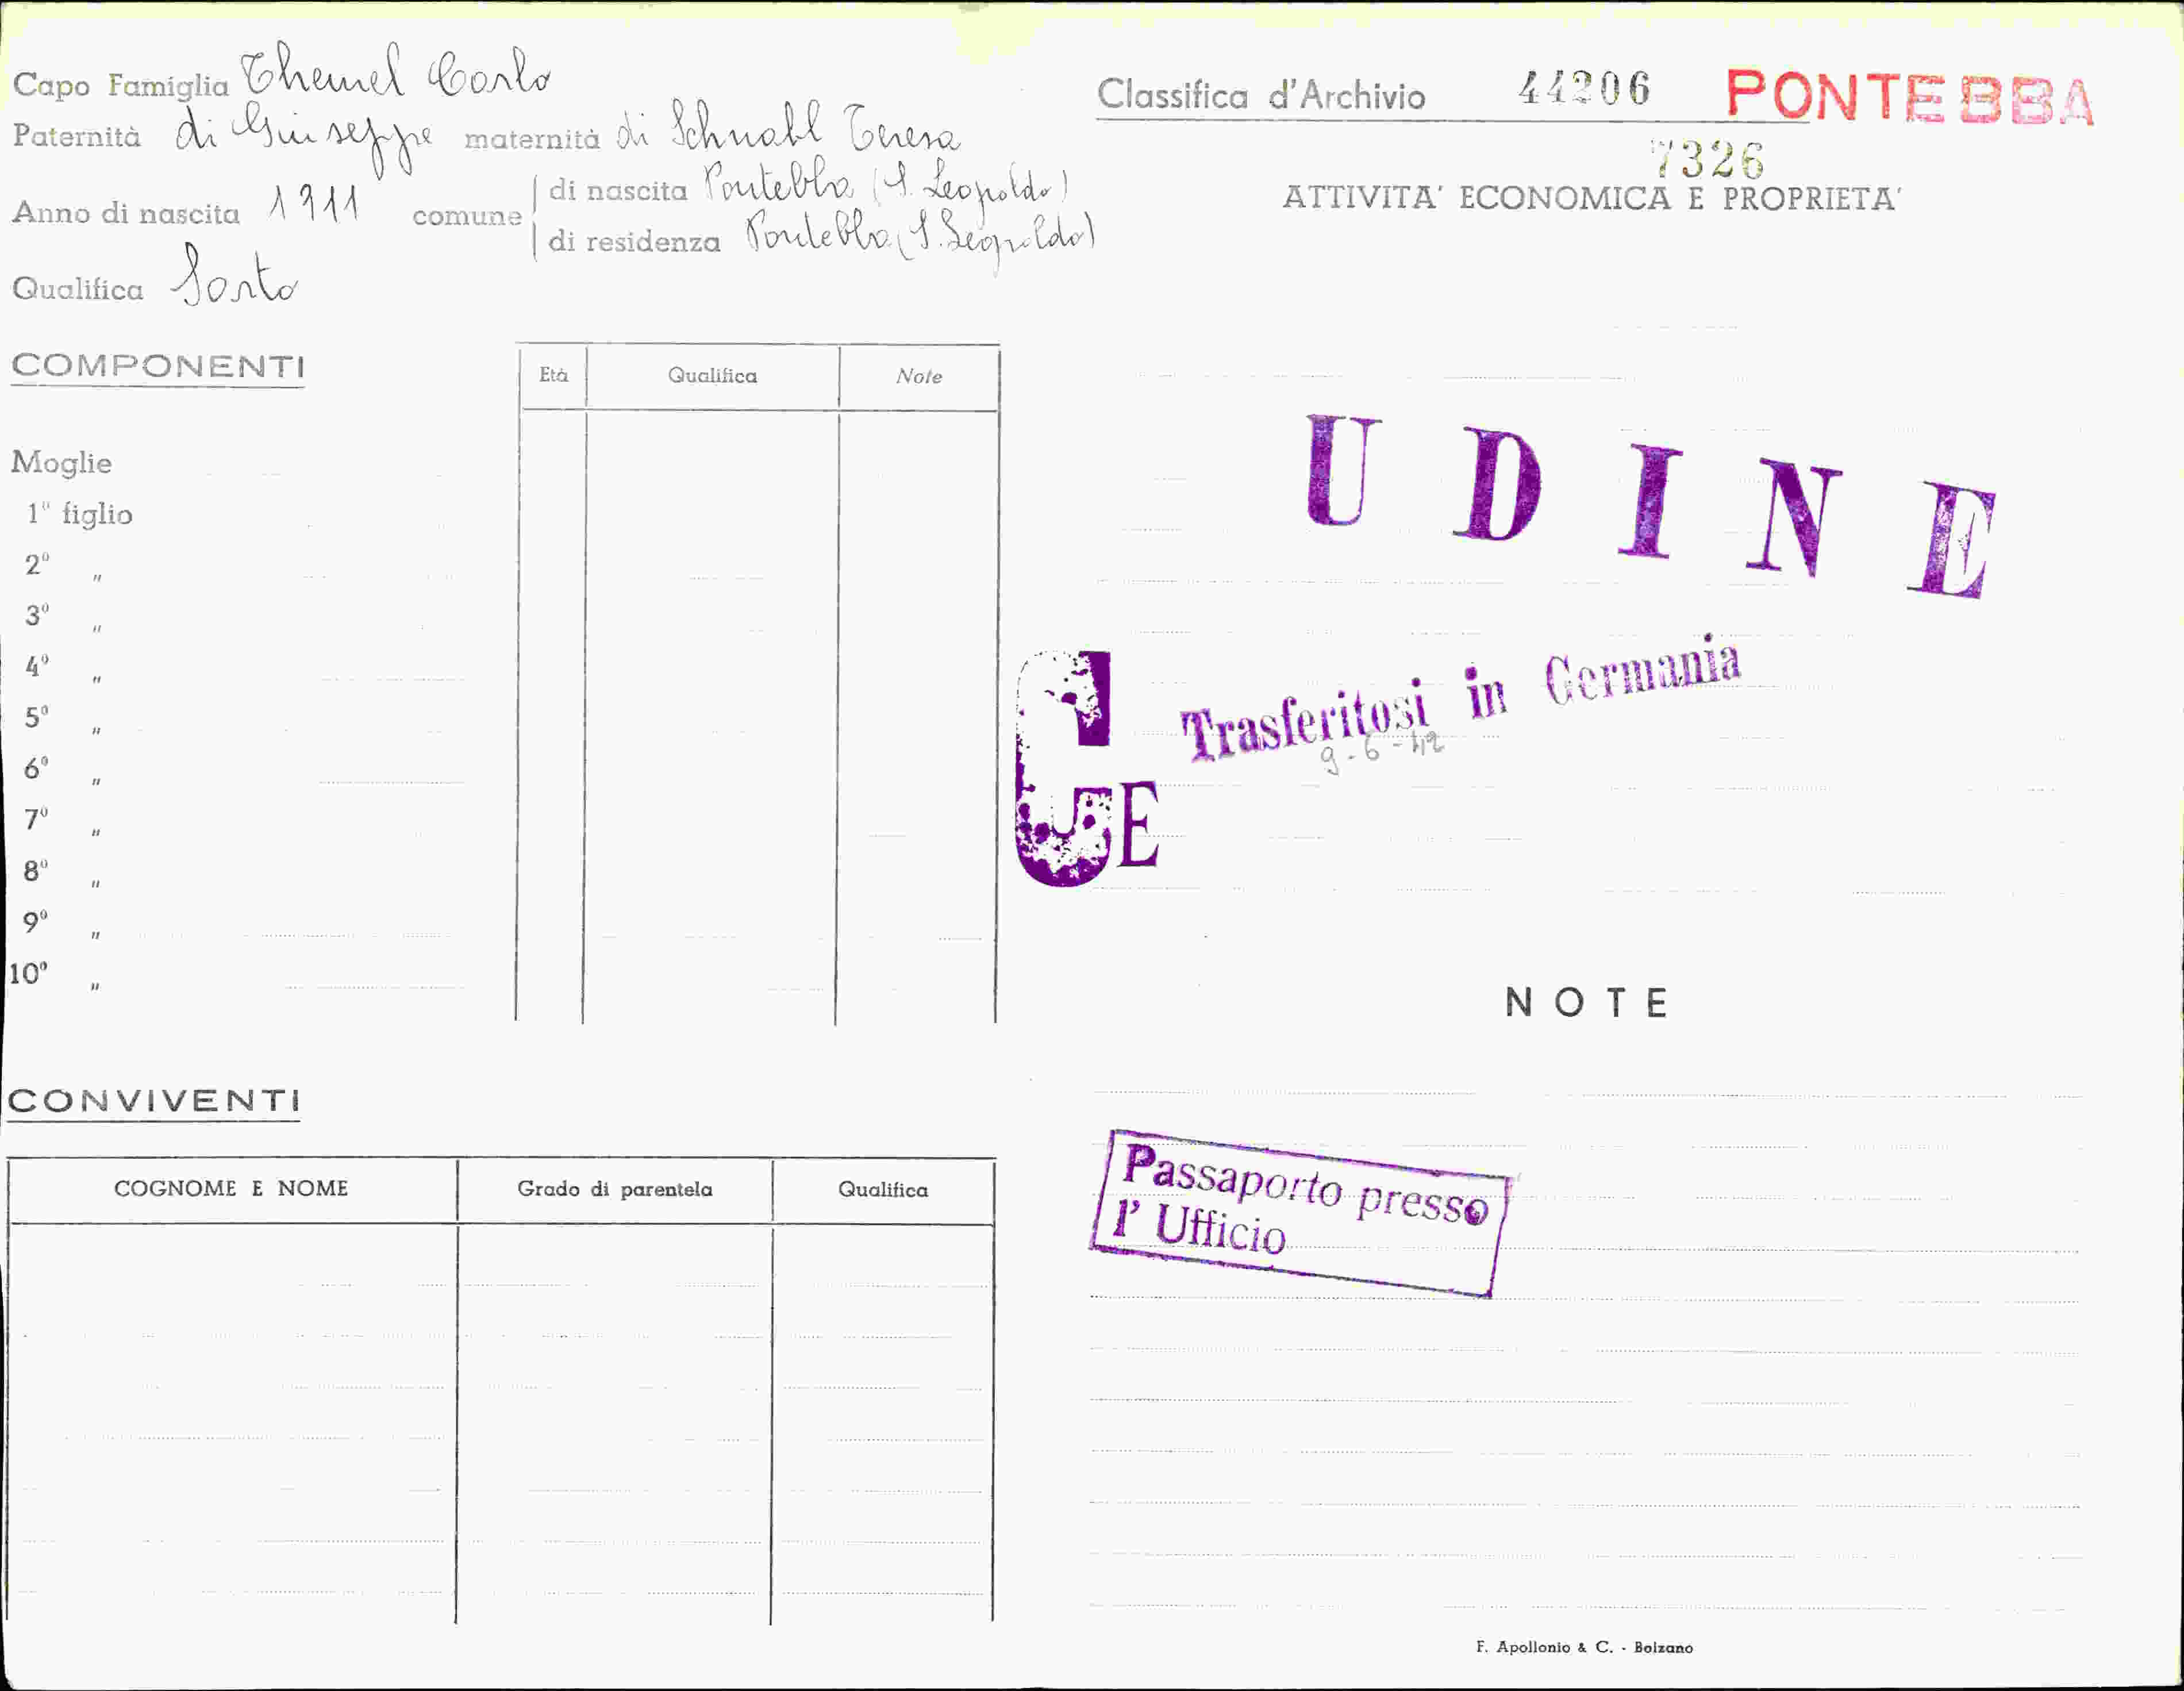 Capo Famiglia Themel Carlo
Paternità di Giuseppe maternità di Schnabl Teresa
Anno di nascita 1911 comune di nascita Pontebba (S. Leopoldo)
di residenza Pontebba (S. Leopoldo)
Qualifica Sarto
COMPONENTI
Età Qualifica Note
Moglie
1º figlio
2º "
3º "
4º "
5º "
6º "
7º "
8º "
9º "
10º "
CONVIVENTI
COGNOME E NOME Grado di parentela Qualifica
Classifica d'Archivio 44206 PONTEBBA
7326
ATTIVITA' ECONOMICA E PROPRIETA'
UDINE
Trasferitosi in Germania
9-6-42
G E
NOTE
Passaporto presso
l' Ufficio
F. Apollonio & C. - Bolzano